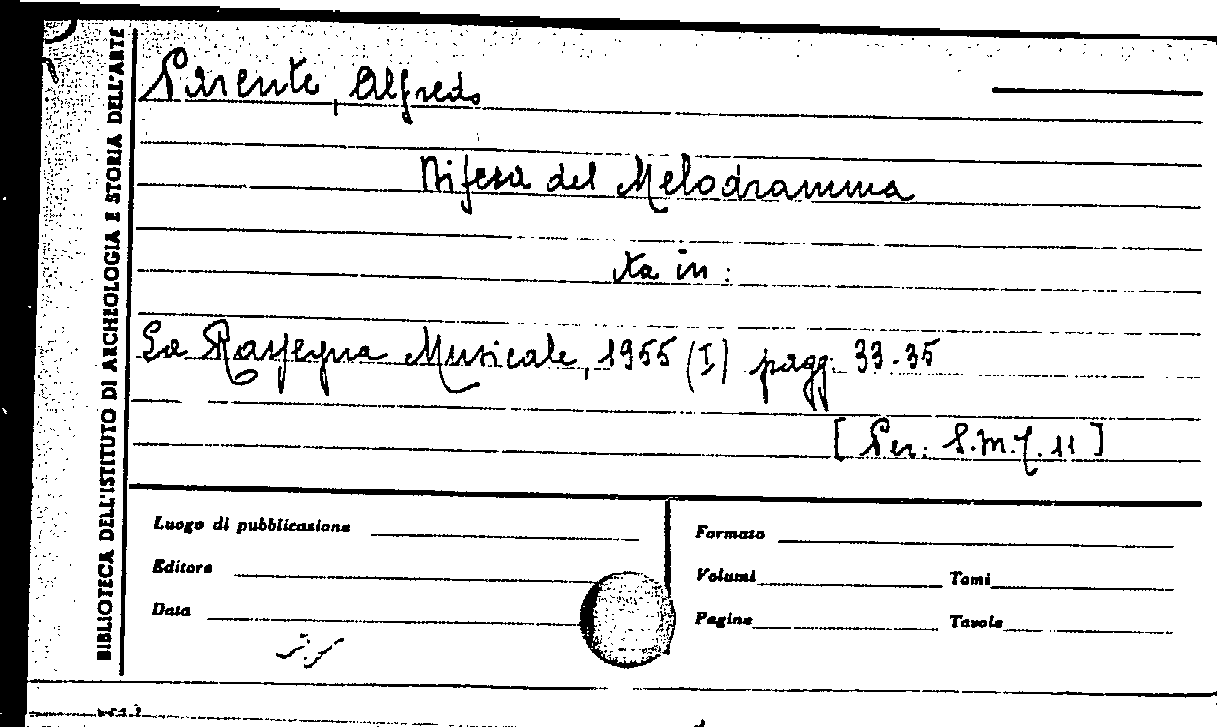 BIBLIOTECA DELL'ISTITUTO DI ARCHEOLOGIA E STORIA DELL'ARTE
Parente, Alfredo
Difesa del Melodramma
Sta in:
La Rassegna Musicale, 1955 (I) pagg. 33-35
[Per: S.M.J. 11]
Luogo di pubblicazione
Formato
Editore
Volumi Tomi
Data
Pagine Tavole